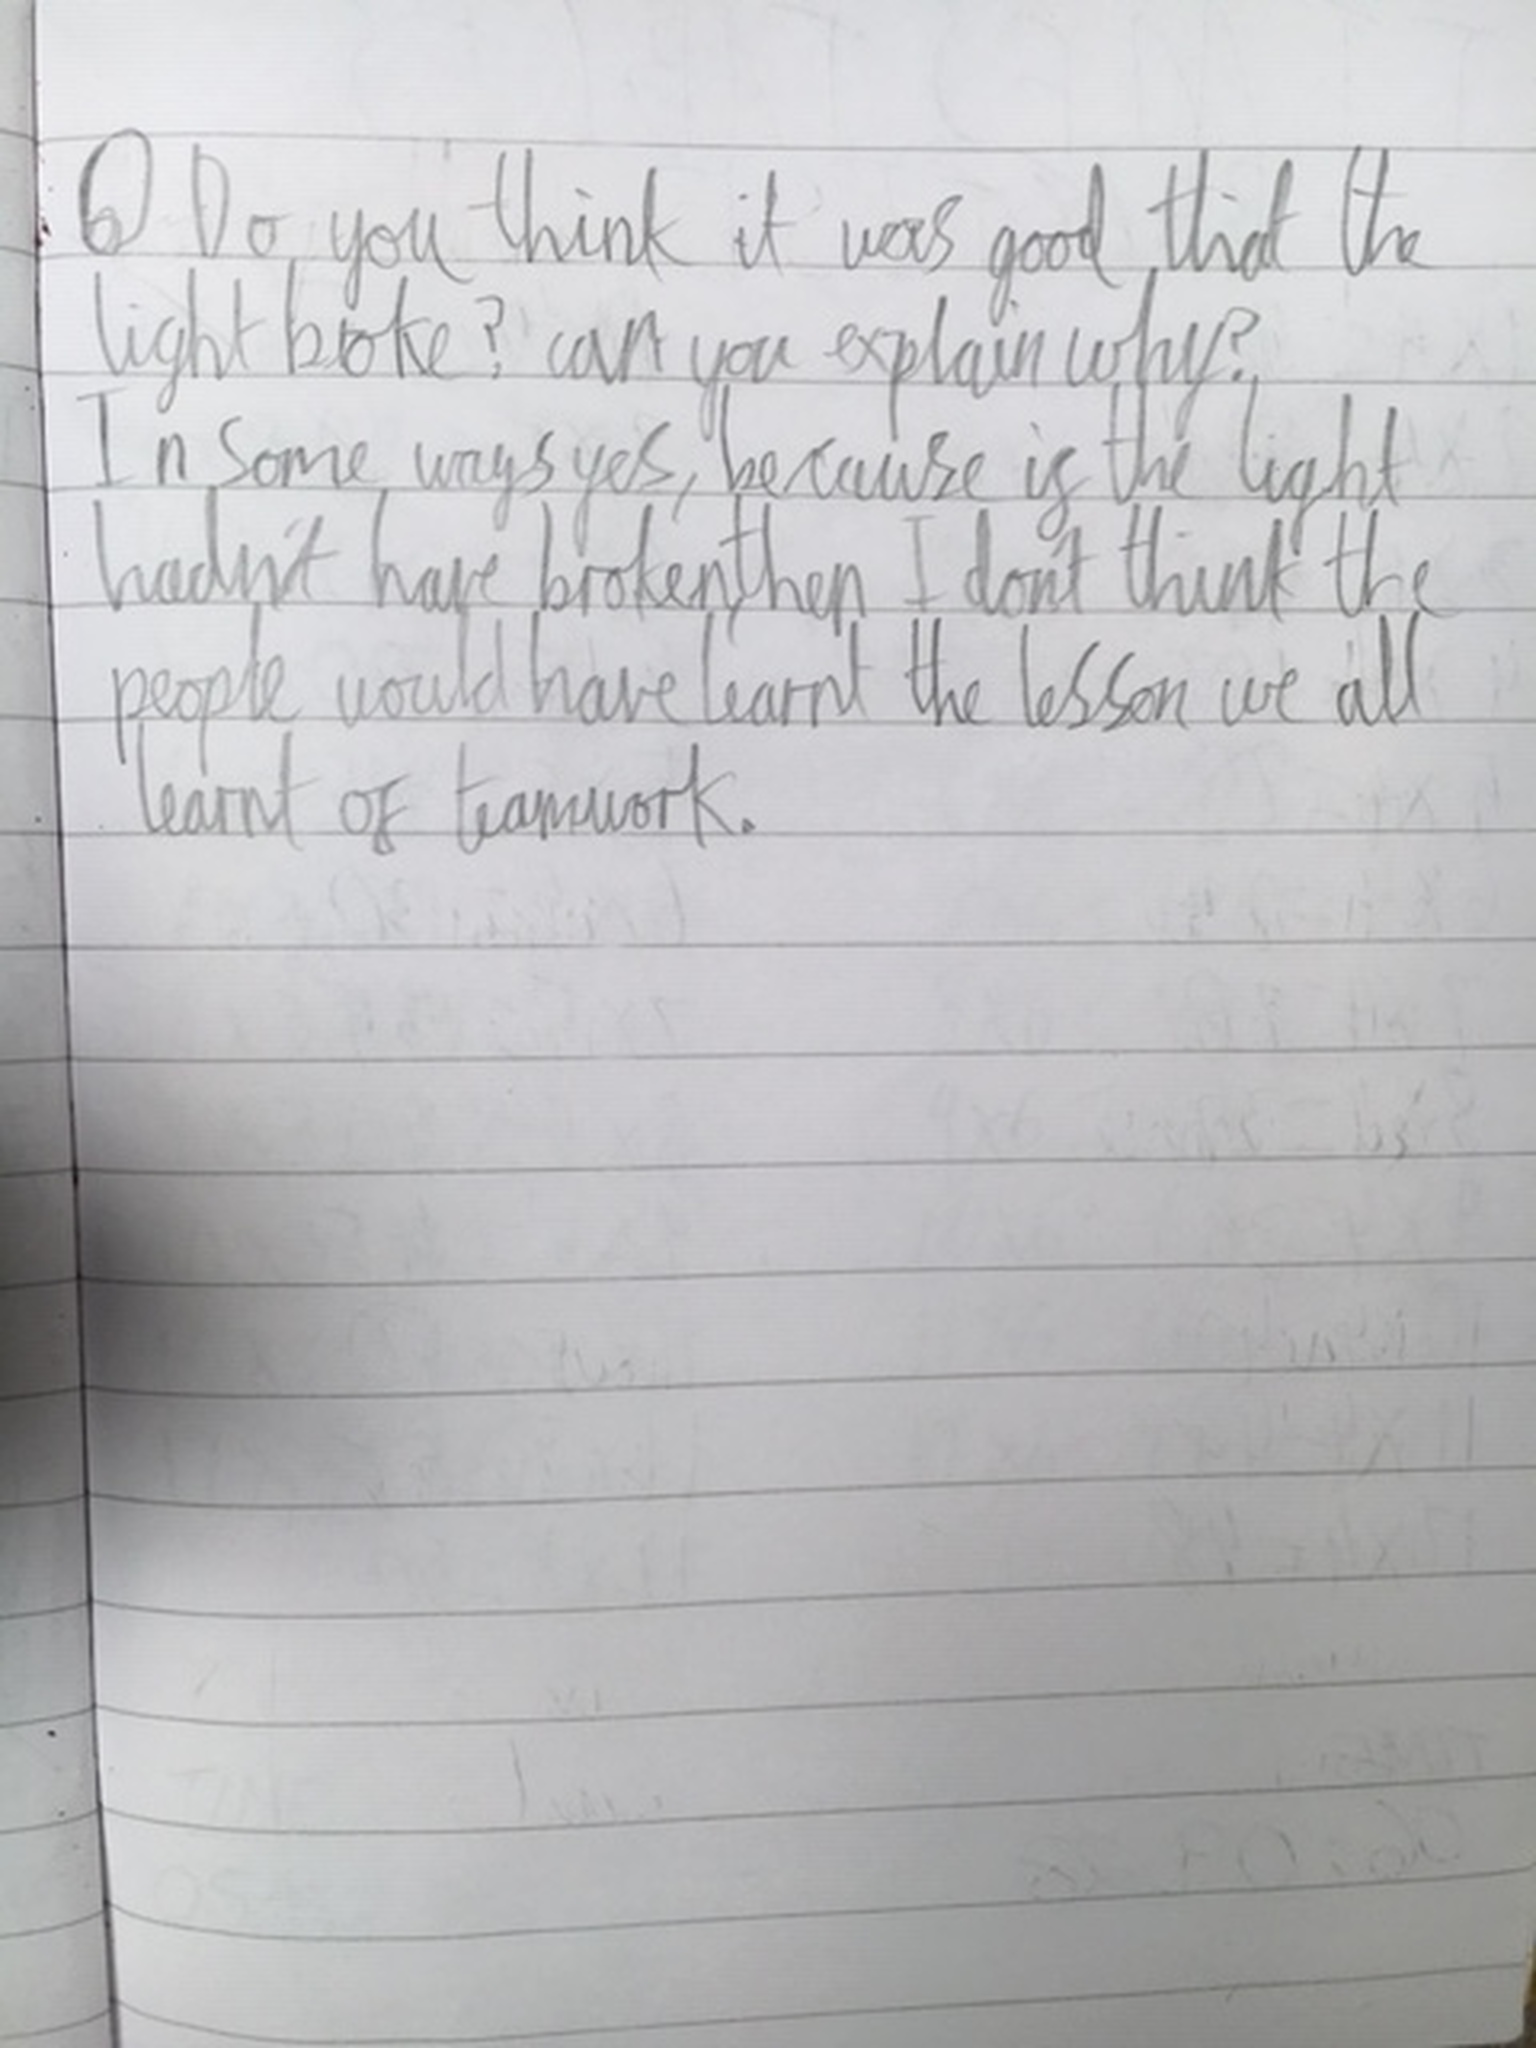 6) Do you think it was good that the
light broke? can you explain why?
In some ways yes, because if the light
hadn't have broken, then I don't think the
people would have learnt the lesson we all
learnt of teamwork.